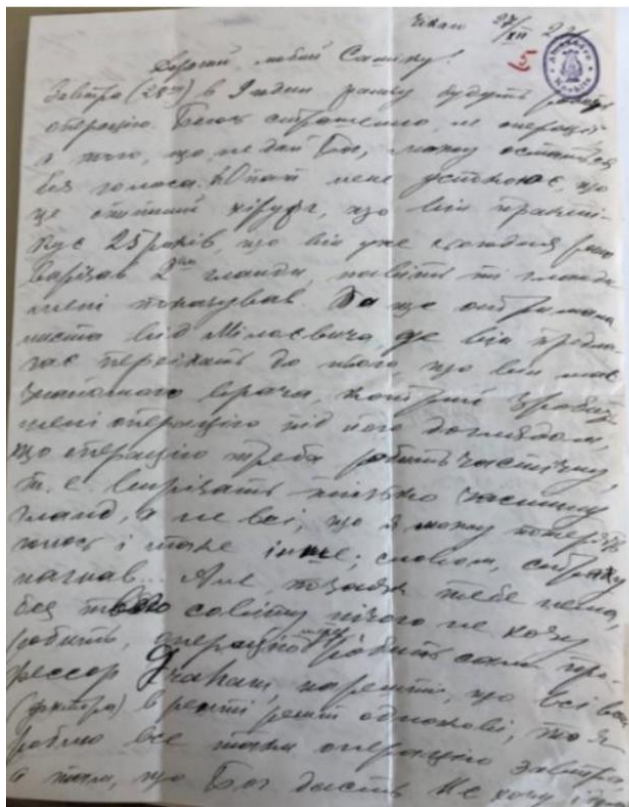 Чікаго 27/XII 22
5
Дорогий, любий Сашику!
Завтра (28го) в 9 годин ранку будуть робить
операцію. Боюсь страшенно, не операції
а того, що, не дай Бог, можу остаться
без голоса. мене успокоює, що
це опитний хірург, що він практи-
кує 25 років, що він уже сьогодня рано
вирізав 2 гланди, навіть ті гланди
мені показував. Та ще отримала
листа від Мілоєвича, де він предла-
гає переїхать до нього, що він має
знайомого врача, котрий зробить
мені операцію під його доглядом,
що операцію треба робить частичну,
т. є. вирізать тілько частину
гланд, а не всі, що я можу потерять
голос і таке інше; словом, страху
нагнав. Але, позаяк тебе нема,
без твого совіту нічого не хочу
робить, операцію робить сам про-
фессор Graham, нарешті, що всі вони
(доктора) в решті решт однакові, то я
роблю все таки операцію завтра,
а там, що Бог дасть. Не хочу